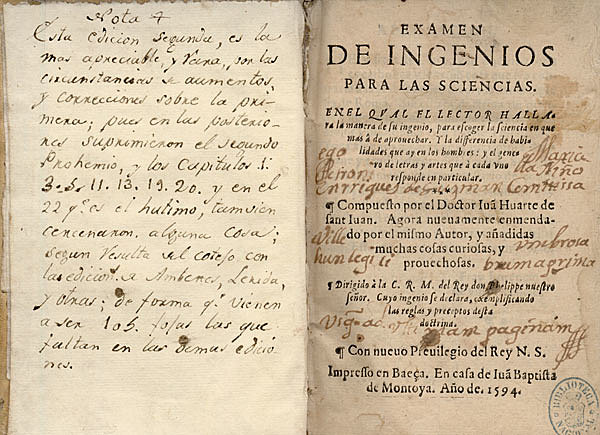 Nota 4
Esta edicion segunda, es la
mas apreciable, y Vara, por las
circunstancias de aumentos,
y correcciones sobre la pri-
mera; pues en las posterio-
nes suprimieron el segundo
Prohemio, y los Capitulos 1.
3. 5. 11. 13. 19. 20. y en el
22 qe. es el hultimo, tamvien
cercenaron alguna cosa;
segun Vesulta del cotejo con
las edicion. de Amberes, Lerida,
y otras; de forma qe. vienen
a ser 105. fojas las que
faltan en las demas edicio
nes.
EXAMEN
DE INGENIOS
PARA LAS SCIENCIAS.
EN EL QVAL EL LECTOR HALLA-
ra la manera de su ingenio, para escoger la sciencia en que
mas à de aprouechar. Y la diferencia de habi-
lidades que ay en los hombres: y el gene-
ro de letras y artes que à cada vno
responde en particular.
¶ Compuesto por el Doctor Iuã Huarte de
sant Iuan. Agora nueuamente enmenda-
do por el mismo Autor, y añadidas
muchas cosas curiosas, y
prouechosas.
¶ Dirigido à la C. R. M. del Rey don Phelippe nuestro
señor. Cuyo ingenio se declara, exẽplificando
las reglas y preceptos desta
doctrina.
ego Maria
Enrriques de Guzman Comitissa
hunc legi
paginam
¶ Con nueuo Preuilegio del Rey N. S.
Impresso en Baeça. En casa de Iuã Baptista
de Montoya. Año de. 1594.
BIBLIOTECA